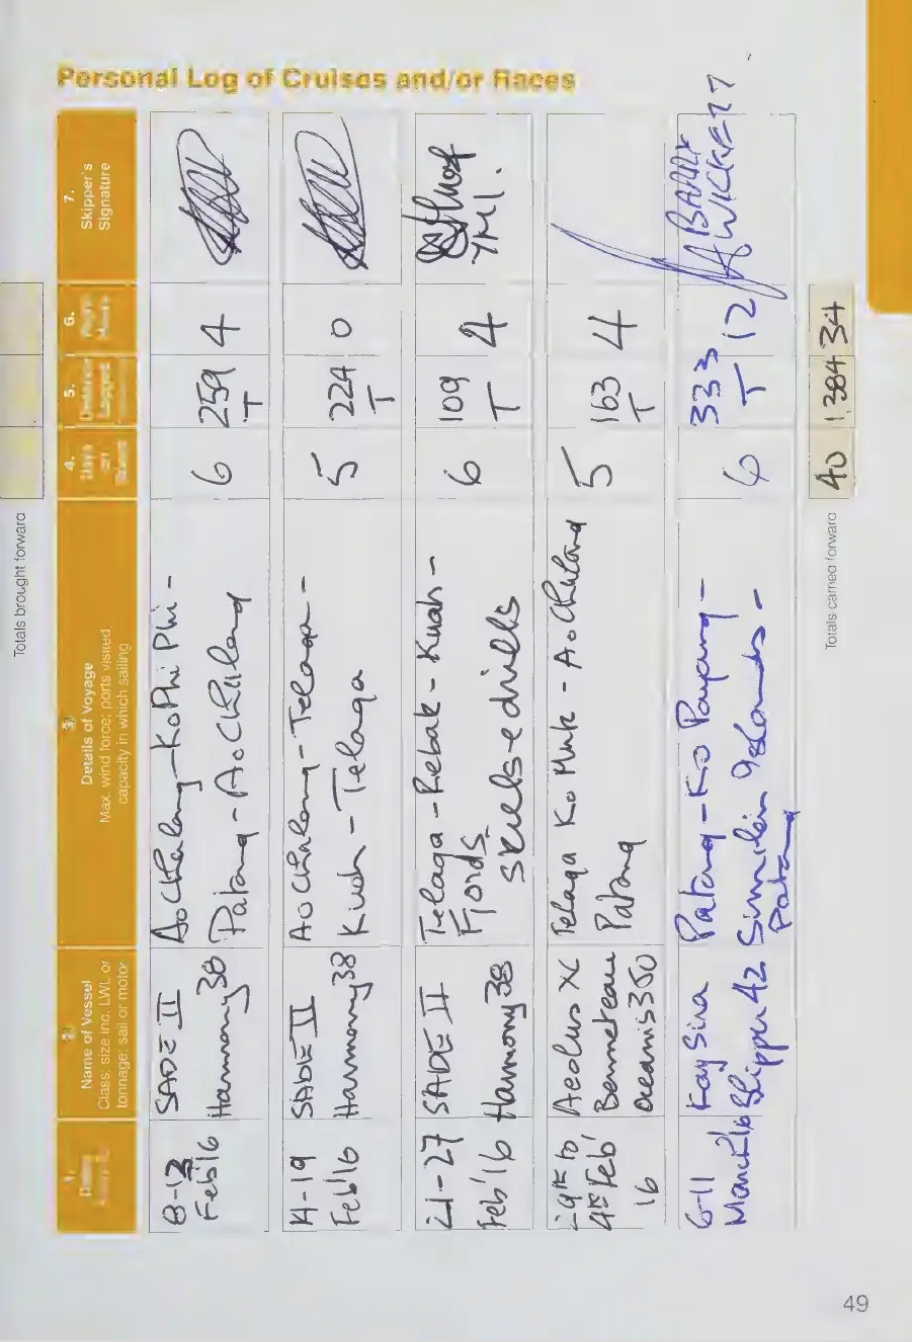 Personal Log of Cruises and/or Races
Totals brought forward
1.
2.
Name of Vessel
Class; size inc. LWL or
tonnage; sail or motor
3.
Details of Voyage
Max. wind force; ports visited;
capacity in which sailing
4.
Days
on
Board
5.
Distance
Logged
6.
Night
Hours
7.
Skipper's
Signature
8-13
Feb'16
SADE II
Harmony 38
Ao Chalong - Ko Phi Phi -
Patong - Ao Chalong
6
259
T
4
14-19
Feb'16
SADE II
Harmony 38
Ao Chalong - Telaga -
Kuah - Telaga
5
224
T
0
21-27
Feb'16
SADE II
Harmony 38
Telaga - Rebak - Kuah -
Fjords
skills + drills
6
109
T
4
YMI.
29th to
4th Feb'
16
Aeolus XC
Benneteau
Oceanis 350
Telaga Ko Muk - Ao Chalong
Patong
5
163
T
4
6-11
March'16
Kay Sira
Shipper 42
Patong - Ko Payang -
Similan Islands -
Patong
6
333
T
12
Totals carried forward
40
1,384
34
49